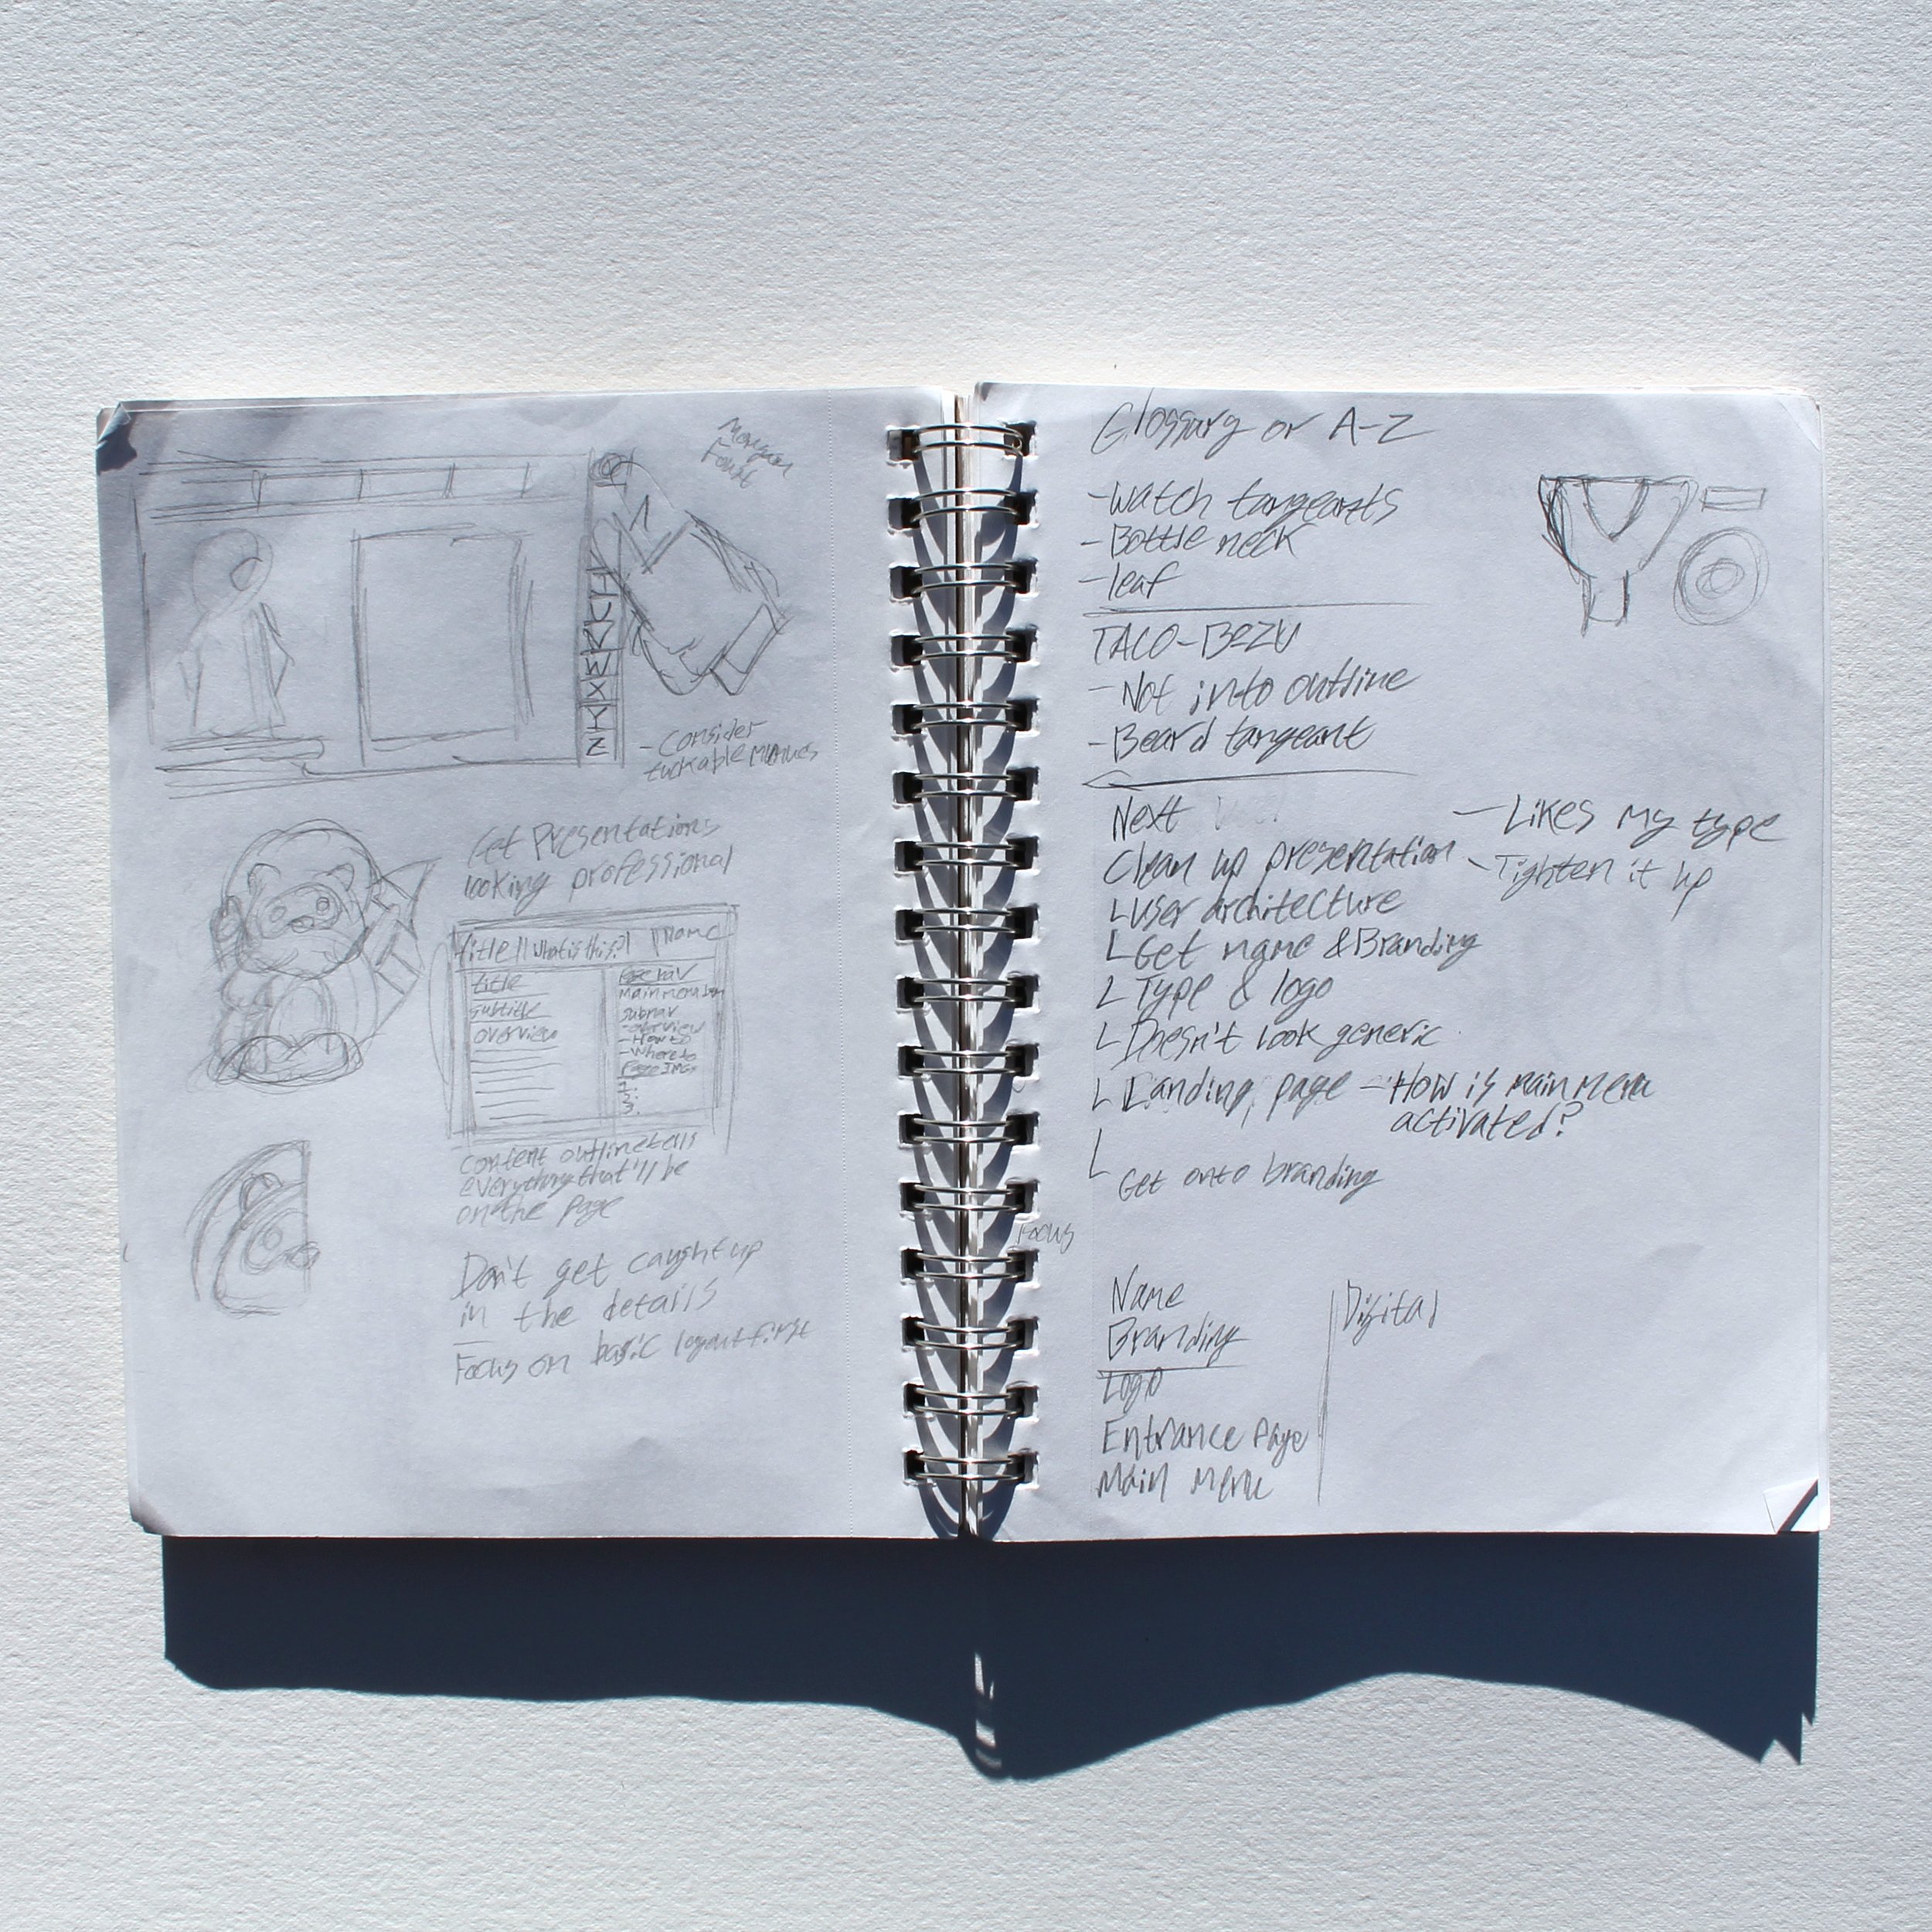 - Consider
tuckable menues
Get Presentations
looking professional
title || what is this? | Name
title
subtitle
overview
main menu
subnav
- overview
- How to
- Where to
Page IMGs
1.
2.
3.
Content outline tells
everything that'll be
on the page
Don't get caught up
in the details
Focus on basic layout first
Glossary or A-Z
- watch tangeants
- Bottle neck
- leaf
TACO-BEZU
- Not into outline
- Beard tangeant
Next
- Likes my type
Clean up presentation
- Tighten it up
L user architecture
L Get name & Branding
L Type & logo
L Doesn't look generic
L Landing page - How is main menu
activated?
L
Get onto branding
Focus
Name
Digital
Branding
Logo
Entrance Page
Main Menu